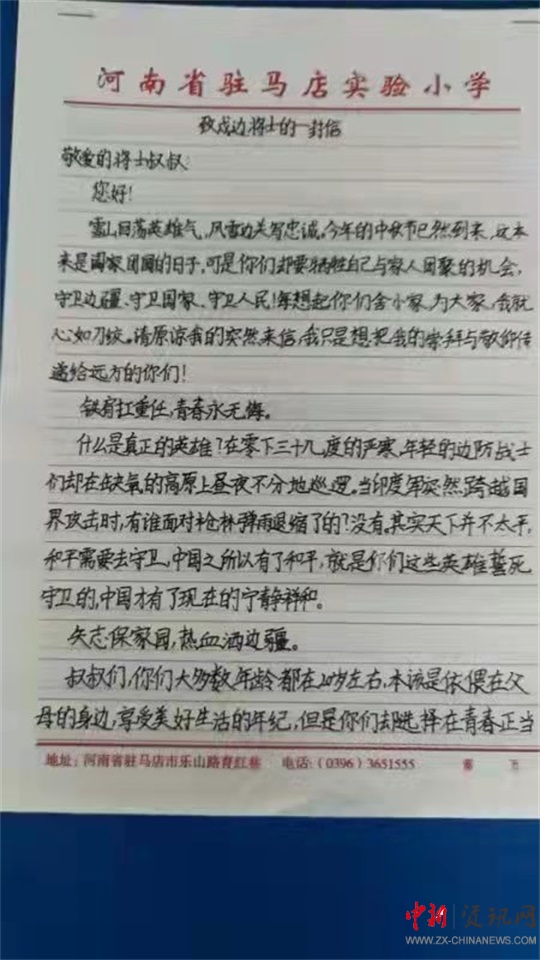 河南省驻马店实验小学
致戍边将士的一封信
敬爱的将士叔叔:
您好!
雪山回荡英雄气,风雪边关写忠诚。今年的中秋节已然到来,这本
来是阖家团圆的日子,可是你们却要牺牲自己与家人团聚的机会,
守卫边疆、守卫国家、守卫人民!每想起你们舍小家,为大家,我就
心如刀绞。请原谅我的突然来信,我只是想把我的崇拜与敬仰传
递给远方的你们!
铁肩扛重任,青春永无悔。
什么是真正的英雄?在零下三十几度的严寒,年轻的边防战士
们却在缺氧的高原上昼夜不分地巡逻。当印度军突然跨越国
界攻击时,有谁面对枪林弹雨退缩了的?没有。其实天下并不太平,
和平需要去守卫,中国之所以有了和平,就是你们这些英雄誓死
守卫的,中国才有了现在的宁静祥和。
矢志保家园,热血洒边疆。
叔叔们,你们大多数年龄都在20岁左右,本该是依偎在父
母的身边,享受美好生活的年纪,但是你们却选择在青春正当
地址:河南省驻马店市乐山路 电话:(0396)3651555
中新资讯网
WWW.ZX-CHINANEWS.COM